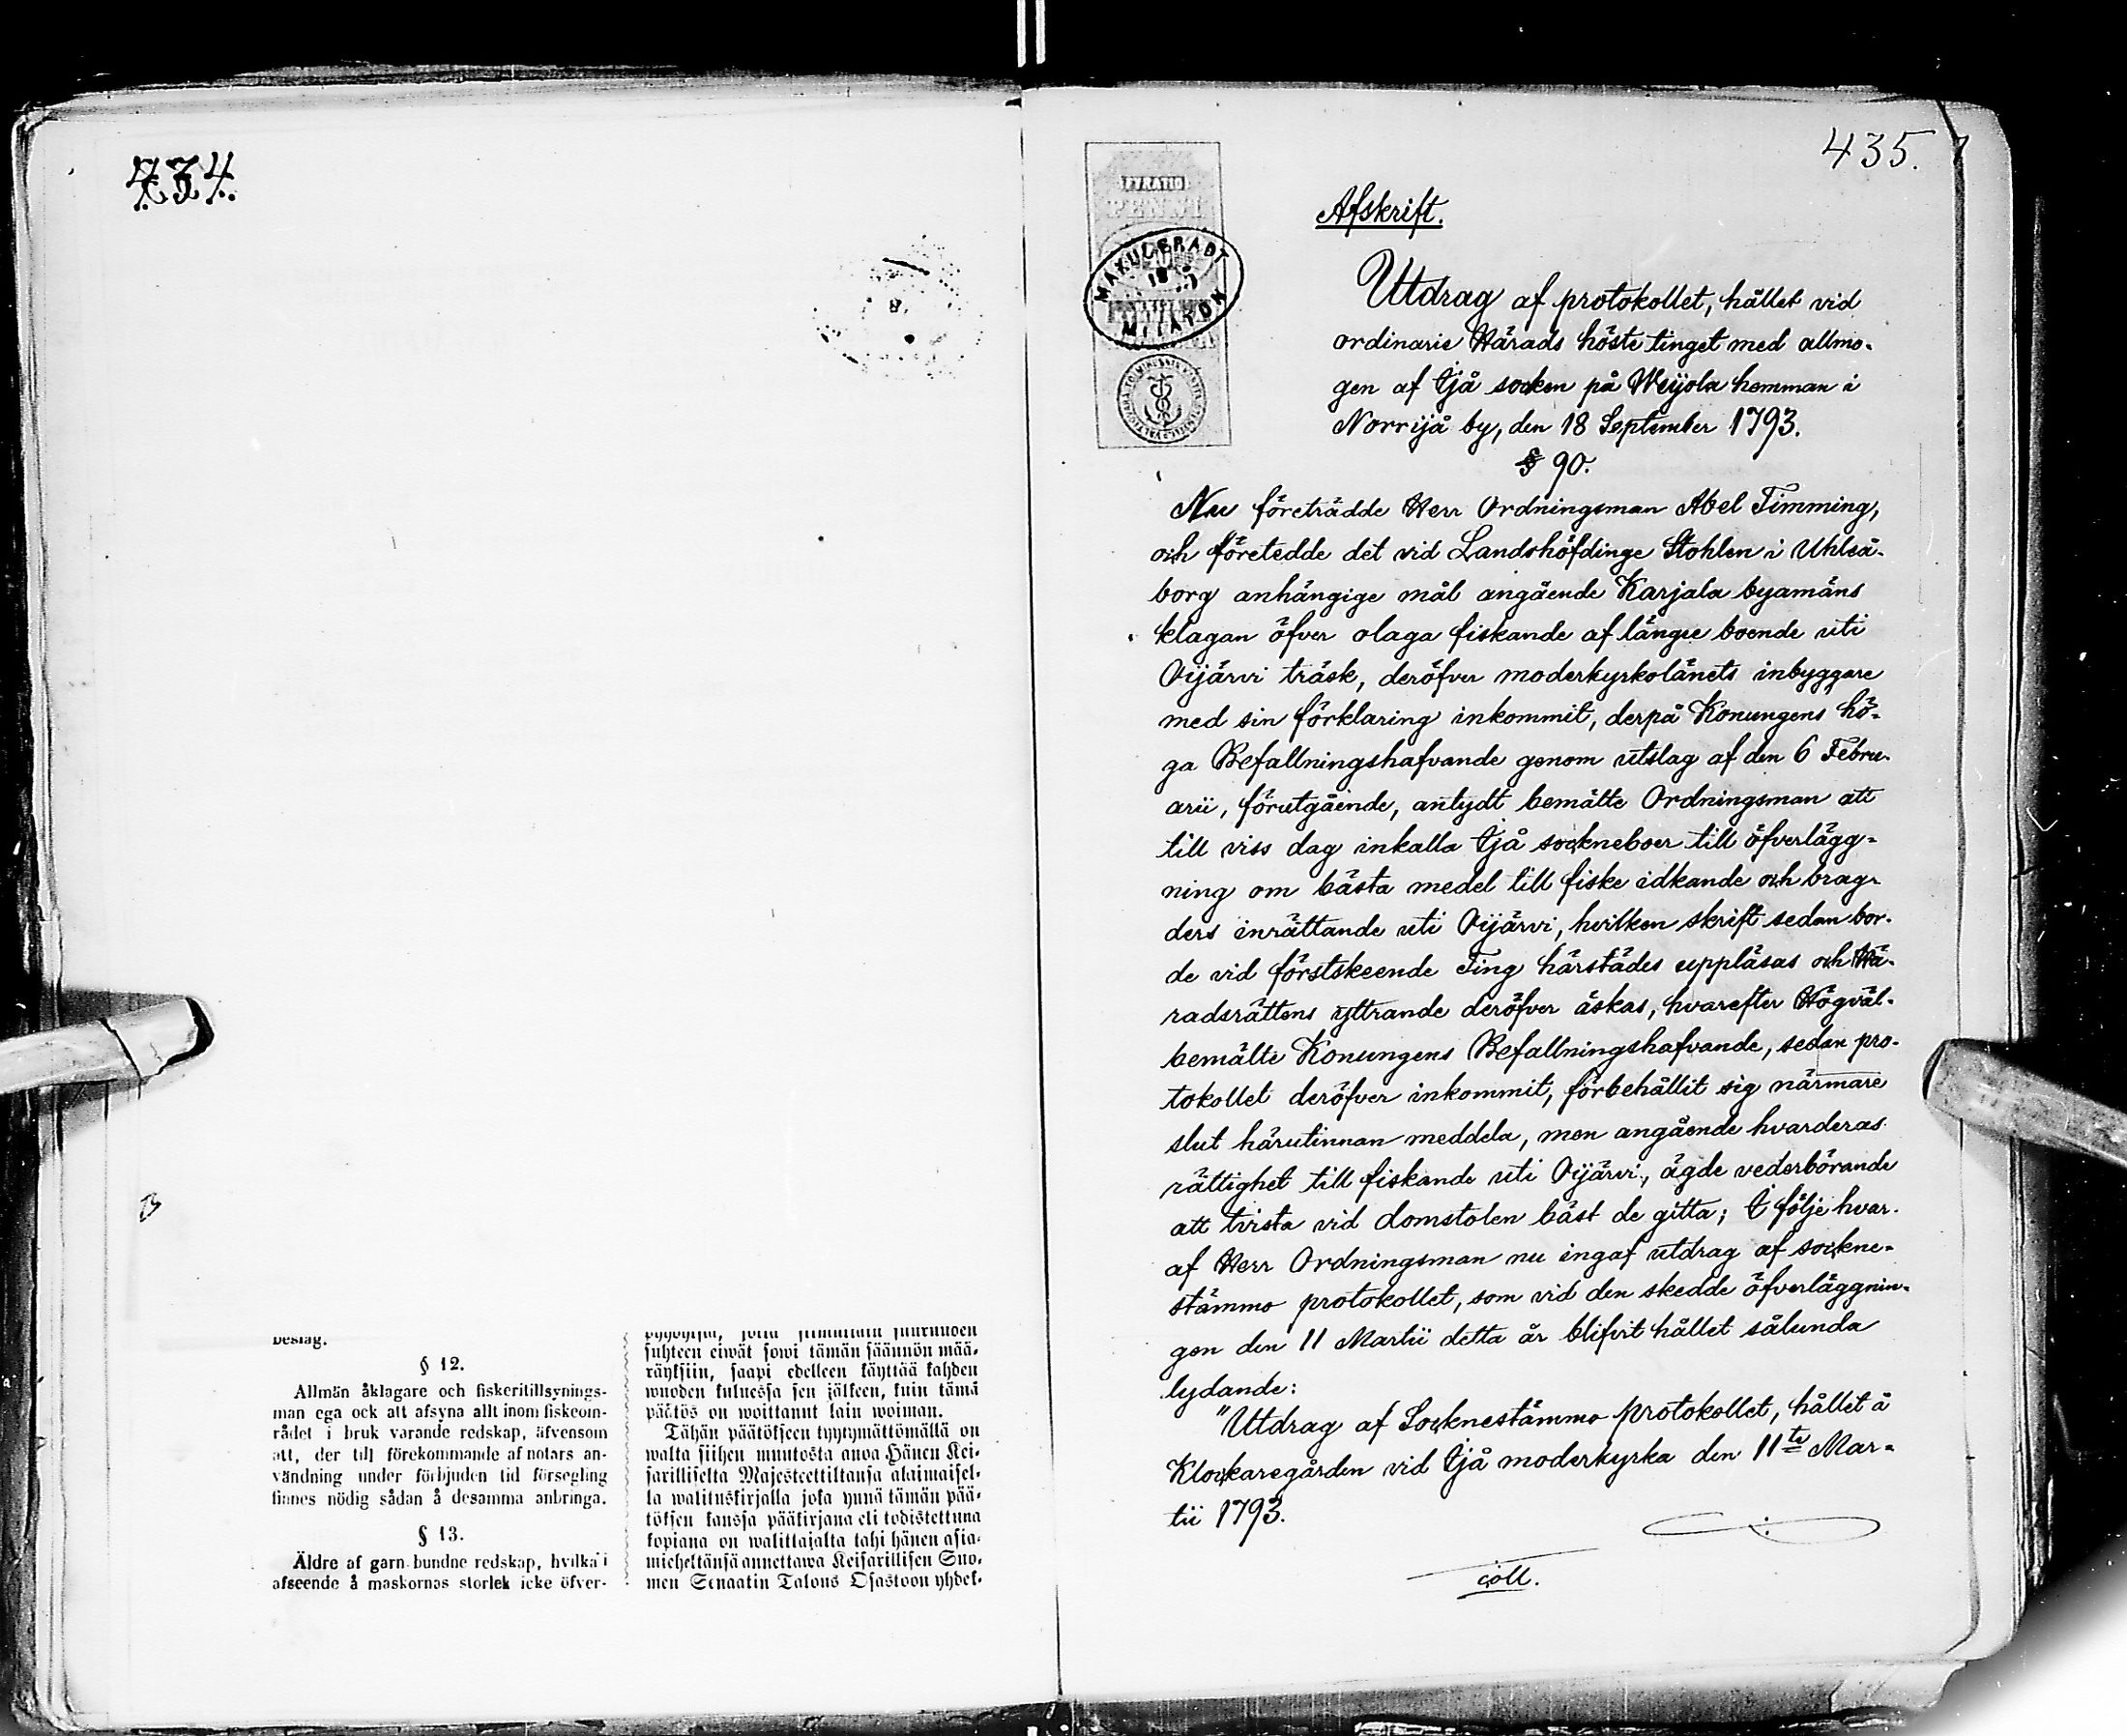 434.
beslag.
§ 12.
Allmän åklagare och fiskeritillsynings-
man ega ock att afsyna allt inom fiskeom-
rådet i bruk varande redskap, äfvensom
att, der till förekommande af notars an-
vändning under förbjuden tid försegling
finnes nödig sådan å desamma anbringa.
§ 13.
Äldre af garn bundne redskap, hvilka i
afseende å maskornas storlek icke öfver-
suhteen eiwät sowi tämän säännön mää-
räyksiin, saapi edelleen käyttää kahden
wuoden kuluessa sen jälkeen, kuin tämä
päätös on woittanut lain woiman.
Tähän päätökseen tyytymättömällä on
walta siihen muutosta anoa Hänen Kei-
sarilliselta Majesteettiltansa alaimaisel-
la walituskirjalla joka ynnä tämän pää-
töksen kanssa pääkirjana eli todistettuna
kopiana on walittajalta tahi hänen asia-
mieheltänsä annettawa Keisarillisen Suo-
men Senaatin Talous Osastoon yhdek-
435.
FYRATIO
PENNI
MAKULERADT
MITÄTÖN
Afskrift.
Utdrag af protokollet, hållet vid
ordinarie Härads höste tinget med allmo-
gen af Ijå socken på Weijola hemman i
Norrijå by, den 18 September 1793.
§ 90.
Nu företrädde Herr Ordningsman Abel Timming,
och företedde det vid Landshöfdinge Stohlen i Uhleå-
borg anhängige mål angående Karjala byamäns
klagan öfver olaga fiskande af längre boende uti
Oijärvi träsk, deröfver moderkyrkolänets inbyggare
med sin förklaring inkommit, derpå Konungens hö-
ga Befallningshafvande genom utslag af den 6 Febru-
arii, förutgående, antydt bemälte Ordningsman att
till viss dag inkalla Ijå sockneboer till öfverlägg-
ning om bästa medel till fiske idkande och brag-
ders inrättande uti Oijärvi, hvilken skrift sedan bor-
de vid förstskeende Ting härstädes uppläsas och Hä-
radsrättens yttrande deröfver äskas, hvarefter Högväl-
bemälte Konungens Befallningshafvande, sedan pro-
tokollet deröfver inkommit, förbehållit sig närmare
slut härutinnan meddela, men angående hvarderas
rättighet till fiskande uti Oijärvi, ägde vederbörande
att tvista vid domstolen bäst de gitta; I följe hvar-
af Herr Ordningsman nu ingaf utdrag af sockne-
stämmo protokollet, som vid den skedde öfverläggnin-
gen den 11 Martii detta år blifvit hållet sålunda
lydande:
"Utdrag af Socknestämmo protokollet, hållet å
Klockaregården vid Ijå moderkyrka den 11te Mar-
tii 1793.
coll.